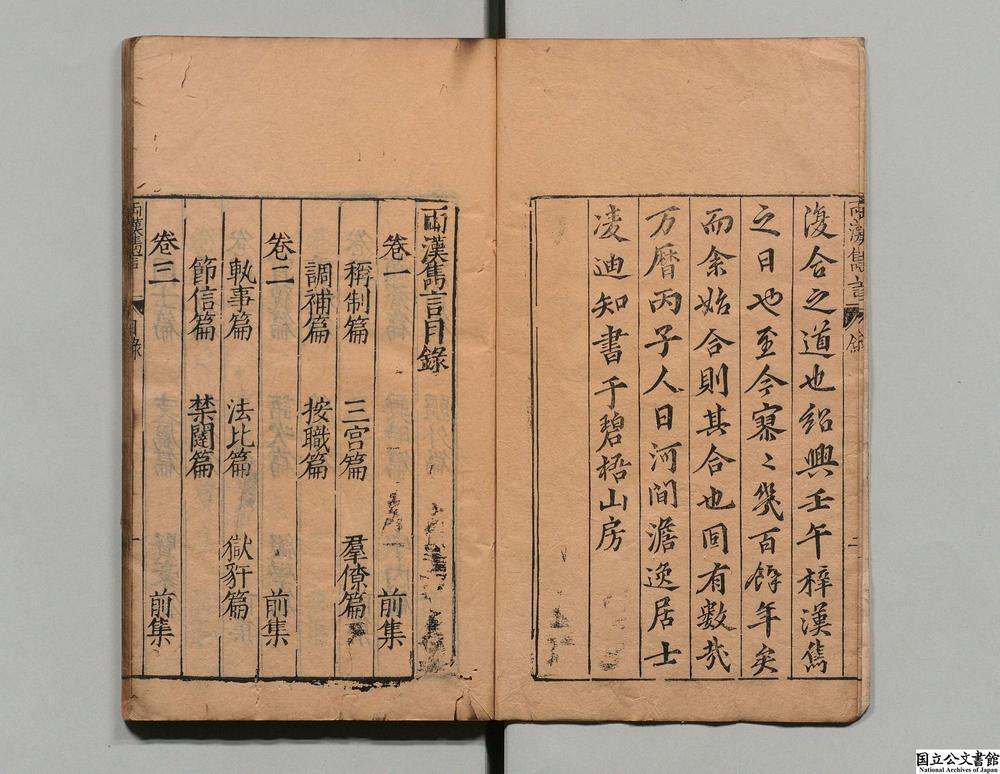 復合之道也紹興壬午梓漢雋
之日也至今寥〻幾百餘年矣
而余始合則其合也固有數哉
万曆丙子人日河間澹逸居士
凌迪知書于碧梧山房
兩漢雋言目錄
卷一 前集
稱制篇 三宮篇 羣僚篇
調補篇 按職篇
卷二 前集
執事篇 法比篇 獄犴篇
節信篇 禁闥篇
卷三 前集
兩漢雋言
目錄
一
兩漢雋言
二
国立公文書館
National Archives of Japan